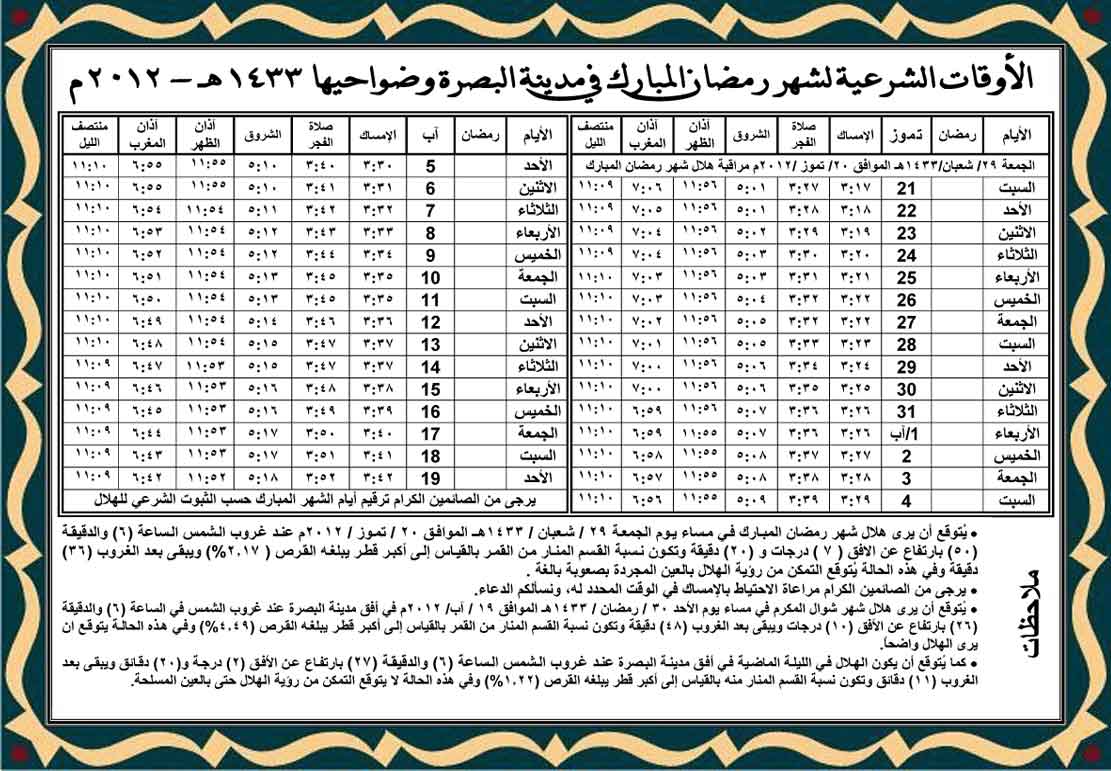 الأوقات الشرعية لشهر رمضان المبارك في مدينة البصرة وضواحيها ١٤٣٣هـ - ٢٠١٢م
الأيام رمضان تموز الإمساك صلاة الفجر الشروق آذان الظهر آذان المغرب منتصف الليل
الجمعة ٢٩/ شعبان/١٤٣٣هـ الموافق ٢٠/ تموز /٢٠١٢م مراقبة هلال شهر رمضان المبارك
السبت 21 ٣:١٧ ٣:٢٧ ٥:٠١ ١١:٥٦ ٧:٠٦ ١١:٠٩
الأحد 22 ٣:١٨ ٣:٢٨ ٥:٠١ ١١:٥٦ ٧:٠٥ ١١:٠٩
الاثنين 23 ٣:١٩ ٣:٢٩ ٥:٠٢ ١١:٥٦ ٧:٠٤ ١١:٠٩
الثلاثاء 24 ٣:٢٠ ٣:٣٠ ٥:٠٣ ١١:٥٦ ٧:٠٤ ١١:٠٩
الأربعاء 25 ٣:٢١ ٣:٣١ ٥:٠٣ ١١:٥٦ ٧:٠٣ ١١:١٠
الخميس 26 ٣:٢٢ ٣:٣٢ ٥:٠٤ ١١:٥٦ ٧:٠٣ ١١:١٠
الجمعة 27 ٣:٢٢ ٣:٣٢ ٥:٠٥ ١١:٥٦ ٧:٠٢ ١١:١٠
السبت 28 ٣:٢٣ ٣:٣٣ ٥:٠٥ ١١:٥٦ ٧:٠١ ١١:١٠
الأحد 29 ٣:٢٤ ٣:٣٤ ٥:٠٦ ١١:٥٦ ٧:٠٠ ١١:١٠
الاثنين 30 ٣:٢٥ ٣:٣٥ ٥:٠٦ ١١:٥٦ ٧:٠٠ ١١:١٠
الثلاثاء 31 ٣:٢٦ ٣:٣٦ ٥:٠٧ ١١:٥٦ ٦:٥٩ ١١:١٠
الأربعاء 1/آب ٣:٢٦ ٣:٣٦ ٥:٠٧ ١١:٥٥ ٦:٥٩ ١١:١٠
الخميس 2 ٣:٢٧ ٣:٣٧ ٥:٠٨ ١١:٥٥ ٦:٥٨ ١١:١٠
الجمعة 3 ٣:٢٨ ٣:٣٨ ٥:٠٨ ١١:٥٥ ٦:٥٧ ١١:١٠
السبت 4 ٣:٢٩ ٣:٣٩ ٥:٠٩ ١١:٥٥ ٦:٥٦ ١١:١٠
الأيام رمضان آب الإمساك صلاة الفجر الشروق آذان الظهر آذان المغرب منتصف الليل
الأحد 5 ٣:٣٠ ٣:٤٠ ٥:١٠ ١١:٥٥ ٦:٥٥ ١١:١٠
الاثنين 6 ٣:٣١ ٣:٤١ ٥:١٠ ١١:٥٥ ٦:٥٥ ١١:١٠
الثلاثاء 7 ٣:٣٢ ٣:٤٢ ٥:١١ ١١:٥٤ ٦:٥٤ ١١:١٠
الأربعاء 8 ٣:٣٣ ٣:٤٣ ٥:١٢ ١١:٥٤ ٦:٥٣ ١١:١٠
الخميس 9 ٣:٣٤ ٣:٤٤ ٥:١٢ ١١:٥٤ ٦:٥٢ ١١:١٠
الجمعة 10 ٣:٣٥ ٣:٤٥ ٥:١٣ ١١:٥٤ ٦:٥١ ١١:١٠
السبت 11 ٣:٣٥ ٣:٤٥ ٥:١٣ ١١:٥٤ ٦:٥٠ ١١:١٠
الأحد 12 ٣:٣٦ ٣:٤٦ ٥:١٤ ١١:٥٤ ٦:٤٩ ١١:١٠
الاثنين 13 ٣:٣٧ ٣:٤٧ ٥:١٥ ١١:٥٤ ٦:٤٨ ١١:١٠
الثلاثاء 14 ٣:٣٧ ٣:٤٧ ٥:١٥ ١١:٥٣ ٦:٤٧ ١١:٠٩
الأربعاء 15 ٣:٣٨ ٣:٤٨ ٥:١٦ ١١:٥٣ ٦:٤٦ ١١:٠٩
الخميس 16 ٣:٣٩ ٣:٤٩ ٥:١٦ ١١:٥٣ ٦:٤٥ ١١:٠٩
الجمعة 17 ٣:٤٠ ٣:٥٠ ٥:١٧ ١١:٥٣ ٦:٤٤ ١١:٠٩
السبت 18 ٣:٤١ ٣:٥١ ٥:١٧ ١١:٥٢ ٦:٤٣ ١١:٠٩
الأحد 19 ٣:٤٢ ٣:٥٢ ٥:١٨ ١١:٥٢ ٦:٤٢ ١١:٠٩
يرجى من الصائمين الكرام ترقيم أيام الشهر المبارك حسب الثبوت الشرعي للهلال
ملاحظات
• يُتوقع أن يرى هلال شهر رمضان المبارك في مساء يوم الجمعة ٢٩ / شعبان / ١٤٣٣هـ الموافق ٢٠ / تموز / ٢٠١٢م عند غروب الشمس الساعة (٦) والدقيقة
(٥٠) بارتفاع عن الافق ( ٧ ) درجات و (٢٠) دقيقة وتكون نسبة القسم المنار من القمر بالقياس إلى أكبر قطر يبلغه القرص ( ٢.١٧%) ويبقى بعد الغروب (٣٦)
دقيقة وفي هذه الحالة يُتوقع التمكن من رؤية الهلال بالعين المجردة بصعوبة بالغة .
• يرجى من الصائمين الكرام مراعاة الاحتياط بالإمساك في الوقت المحدد له، ونسألكم الدعاء.
• يُتوقع أن يرى هلال شهر شوال المكرم في مساء يوم الأحد ٣٠ / رمضان / ١٤٣٣هـ الموافق ١٩ / آب/ ٢٠١٢م في أفق مدينة البصرة عند غروب الشمس في الساعة (٦) والدقيقة
(٢٦) بارتفاع عن الأفق (١٠) درجات ويبقى بعد الغروب (٤٨) دقيقة وتكون نسبة القسم المنار من القمر بالقياس إلى أكبر قطر يبلغه القرص (٤.٤٩%) وفي هذه الحالة يتوقع ان
يرى الهلال واضحاً.
• كما يُتوقع أن يكون الهلال في الليلة الماضية في أفق مدينة البصرة عند غروب الشمس الساعة (٦) والدقيقة (٢٧) بارتفاع عن الأفق (٢) درجة و(٢٠) دقائق ويبقى بعد
الغروب (١١) دقائق وتكون نسبة القسم المنار منه بالقياس إلى أكبر قطر يبلغه القرص (١.٢٢%) وفي هذه الحالة لا يتوقع التمكن من رؤية الهلال حتى بالعين المسلحة.